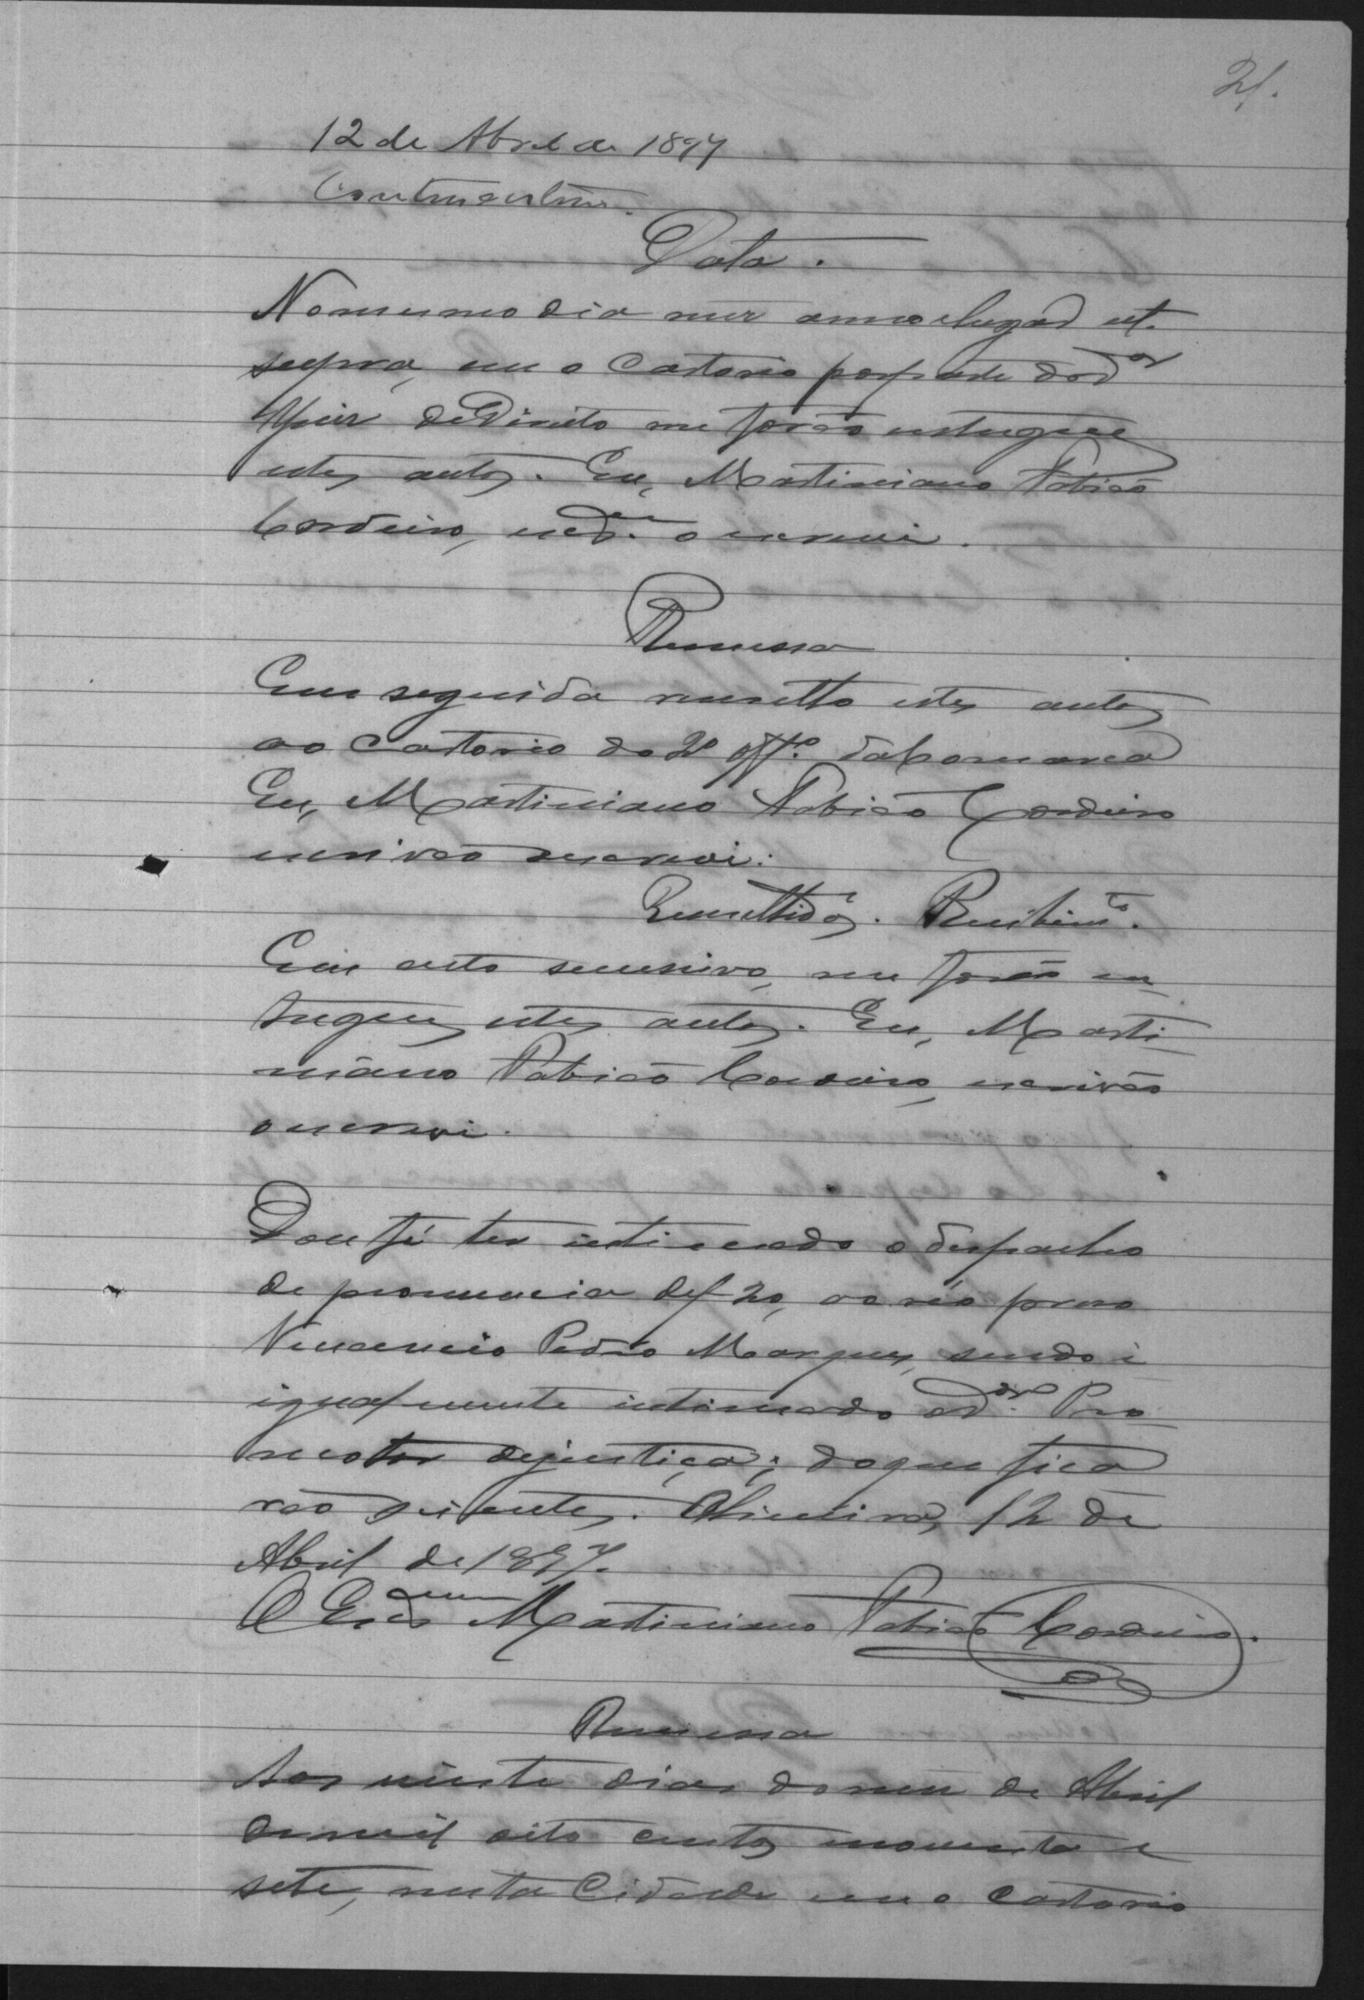 21.
12 de Abril de 1897
Data.
No mesmo dia mez anno e lugar ut
supra, em o Cartorio por parte do dr
Juiz de Direito me forão entregues
estes autos. Eu, Martiniano Fabião
Cordeiro, o escrevi.
Remessa
Em seguida remetto estes autos
ao Cartorio do 2º offº. da Comarca
Eu, Martiniano Fabião Cordeiro
escrivão o escrevi.
Remettidos. Recebimto.
Em acto sucessivo, me forão en
tregues estes autos. Eu, Marti
niano Fabião Cordeiro, escrivão
o escrevi.
Dou fé ter intimado o despacho
de pronuncia de f 20, ao réo preso
Venancio Pedro Marques, sendo
igualmente intimado o dr. Pro
motor de justiça; do que fica
rão scientes. Oliveira, 12 de
Abril de 1897.
O Martiniano Fabião Cordeiro.
Remessa
Aos vinte dias do mez de Abril
de mil oito centos noventa e
sete, nesta Cidade em o Cartorio